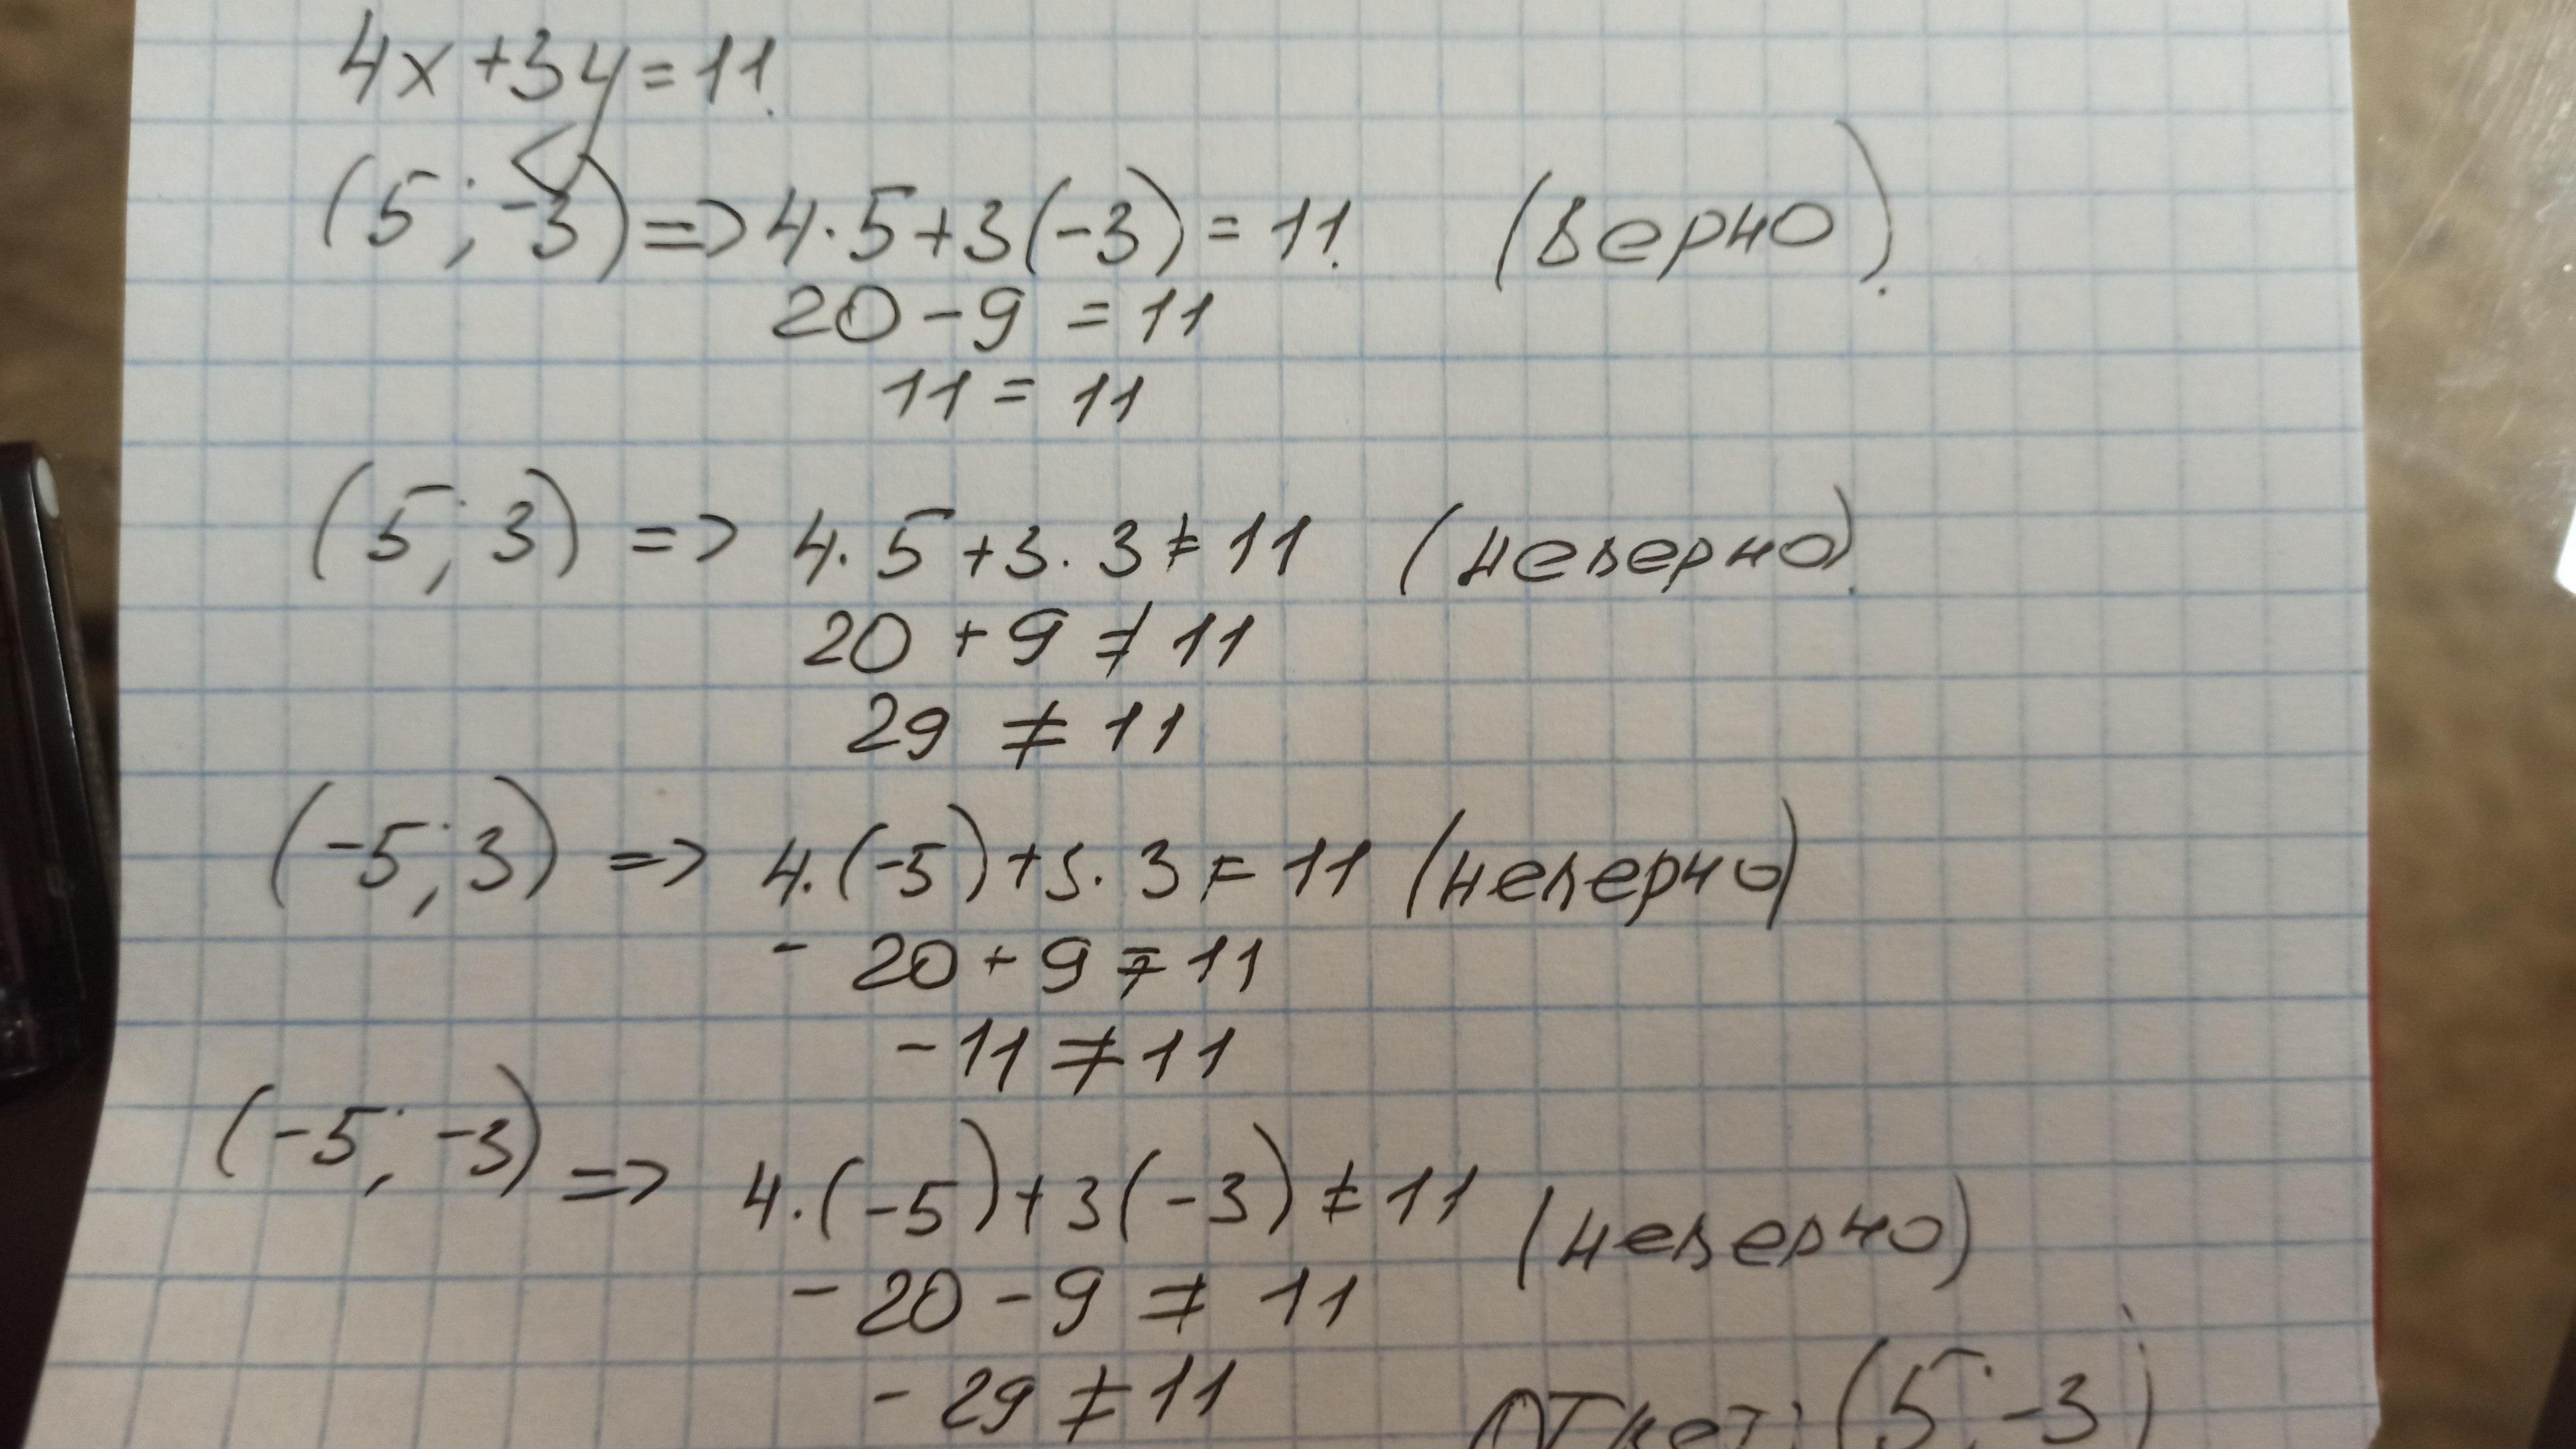 4x+3y=11.
(5; -3) => 4·5+3(-3) = 11. (верно).
20-9 = 11
11 = 11
(5; 3) => 4·5+3·3≠11 (неверно).
20+9≠11
29 ≠ 11
(-5; 3) => 4·(-5)+3·3≠11 (неверно)
-20+9≠11
-11≠11
(-5; -3) => 4·(-5)+3(-3)≠11 (неверно)
-20-9≠11
-29≠11
Ответ: (5; -3)